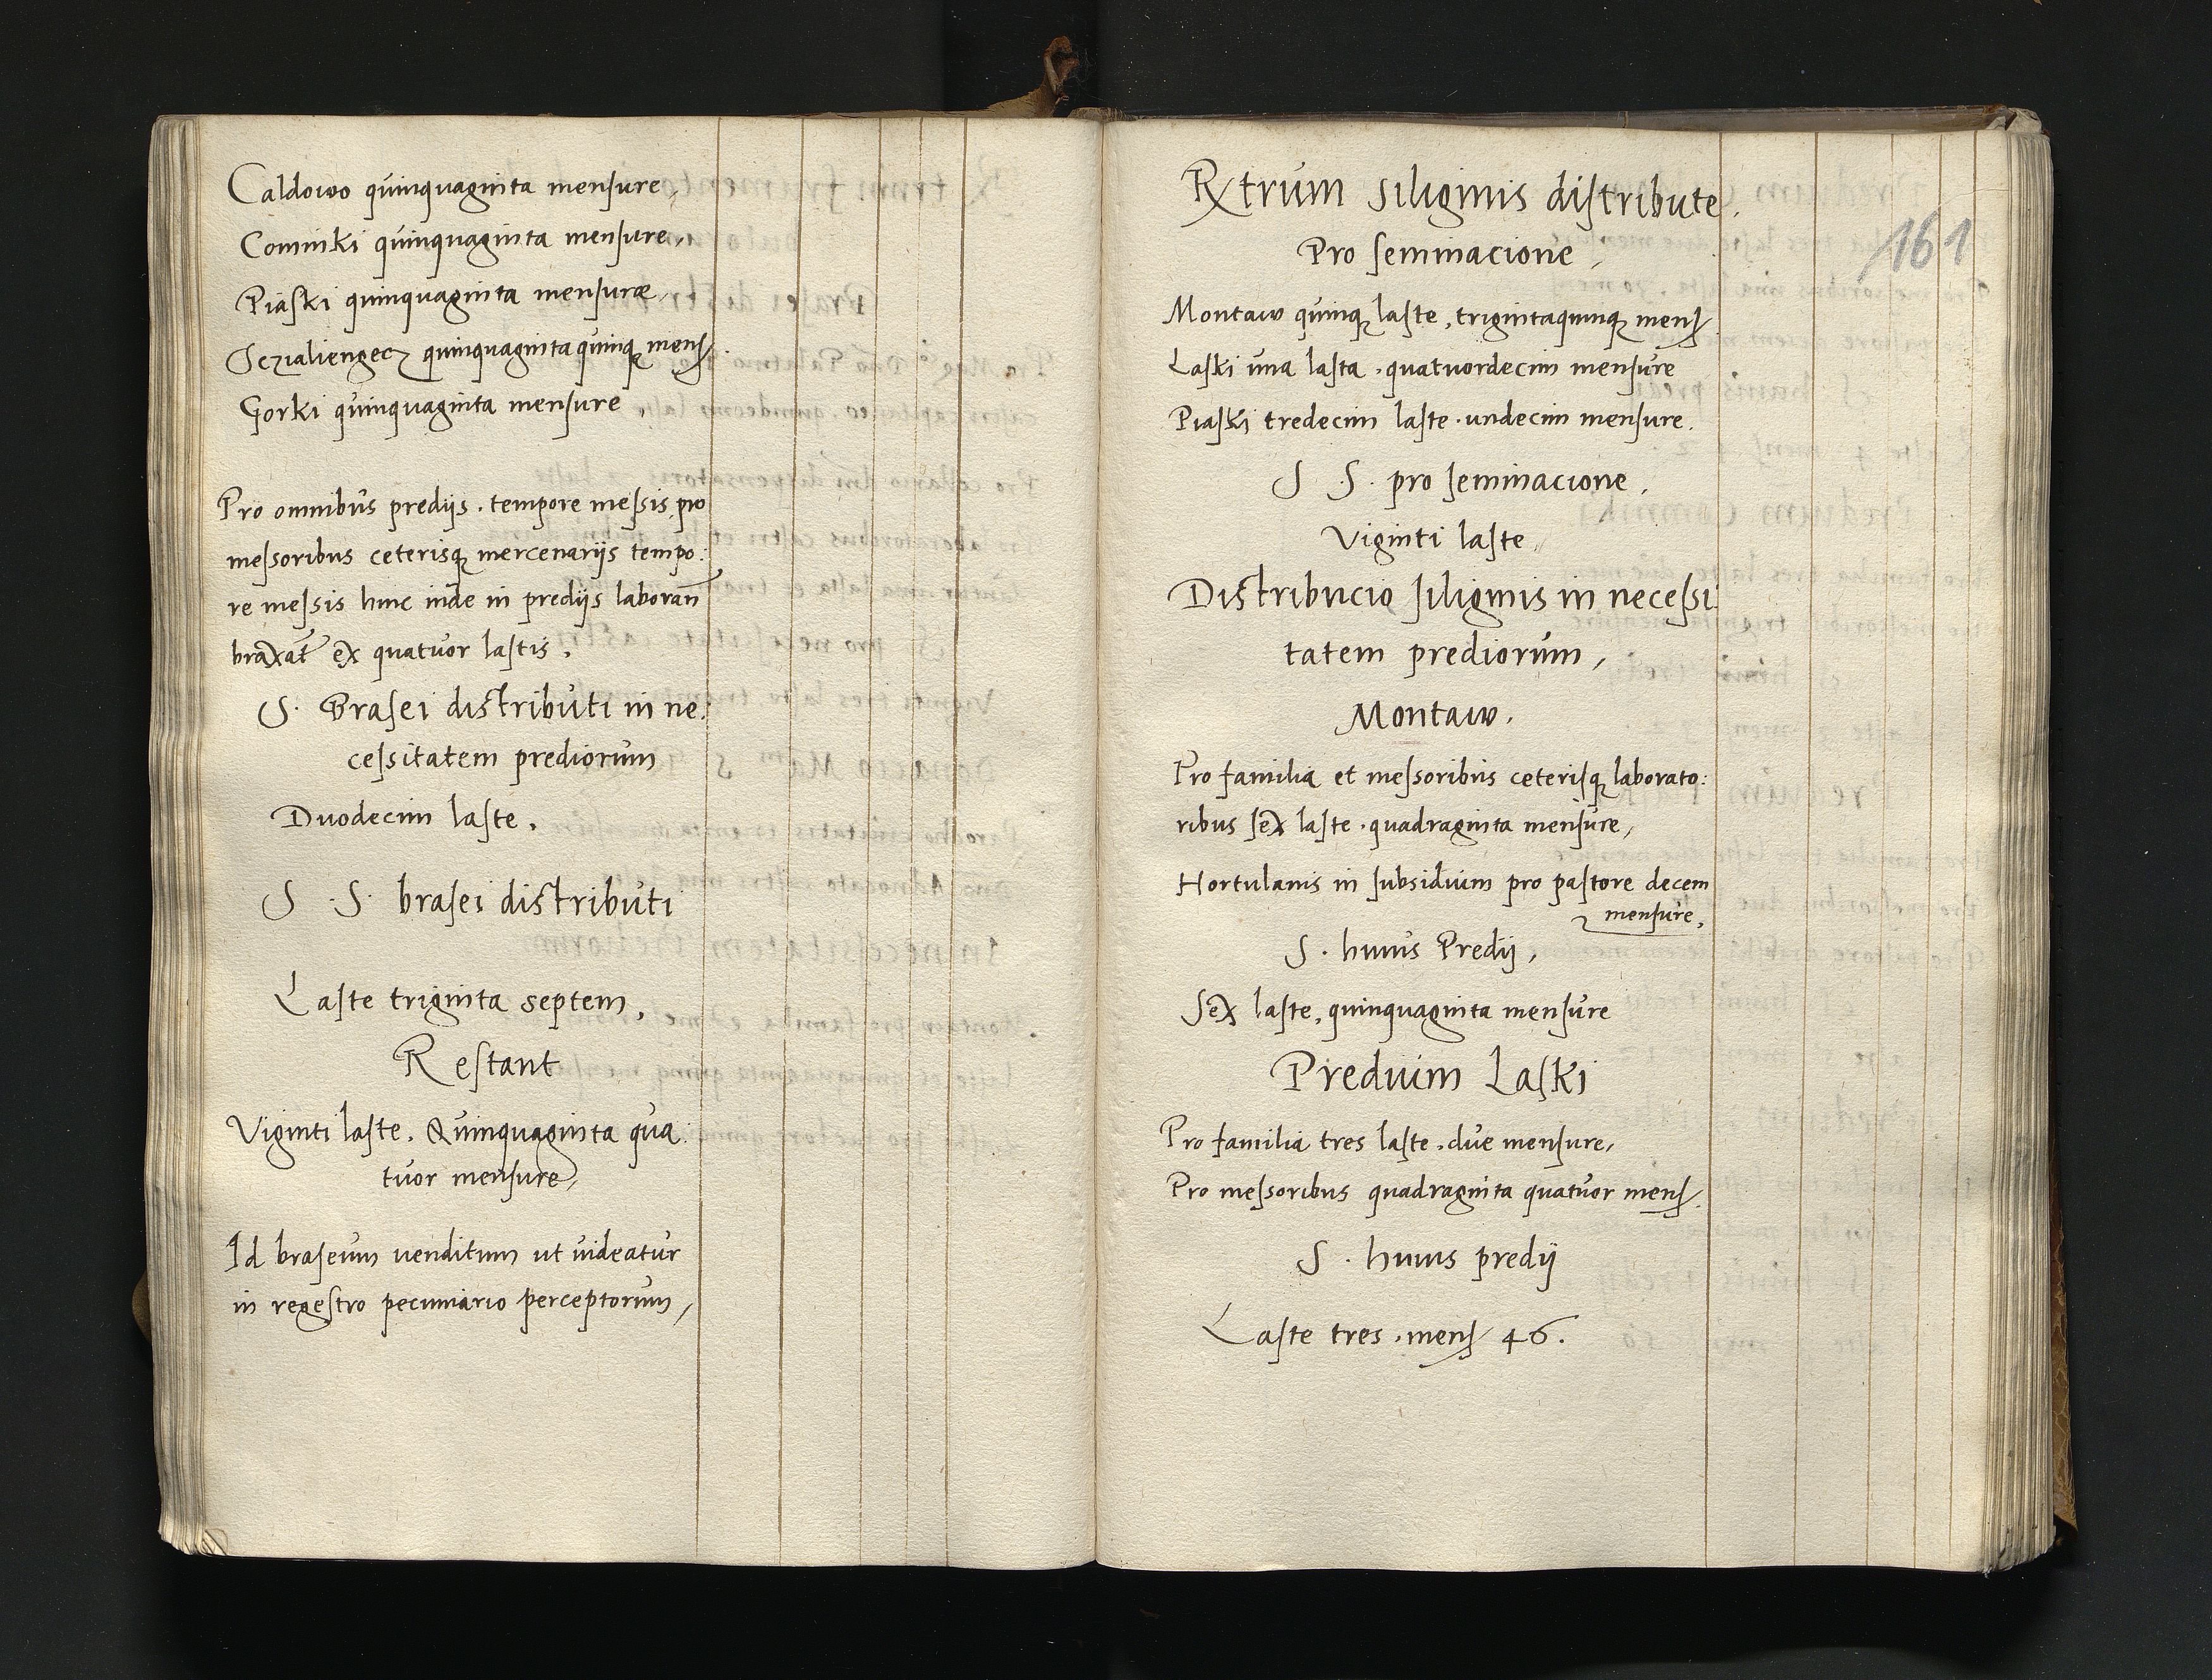 Caldowo quinquaginta mensure,
Cominki quinquaginta mensure,
Piaski quinquaginta mensuræ,
Sczaliengecz quinquaginta quinq mens.
Gorki quinquaginta mensure,
Pro omnibus predijs. tempore messis pro
messoribus ceterisq mercenarijs tempo:
re messis hinc inde in predijs laboran̄
braxat ex quatuor lastis.
S. Brasei distributi in ne:
cessitatem prediorum
Duodecim laste.
S. S. brasei distributi
Laste triginta septem,
Restant
Viginti laste. Quinquaginta qua:
tuor mensure,
Id braseum venditum ut videatur
in regestro pecuniario perceptorum,
Rxtrum siliginis distribute.
161
Pro seminacione,
Montaw quinq laste, trigintaquinq mens
Laski una lasta. quatuordecim mensure
Piaski tredecim laste. undecim mensure.
S S. pro seminacione,
Viginti laste,
Distribucio siliginis in necessi:
tatem prediorum,
Montaw.
Pro familia et messoribus ceterisq laborato:
ribus sex laste. quadraginta mensure,
Hortulanis in subsidium pro pastore decem
mensure,
S. huius Predij,
Sex laste, quinquaginta mensure
Predium Laski
Pro familia tres laste. due mensure,
Pro messoribus quadraginta quatuor mens.
S. huius predij
Laste tres. mens 46.